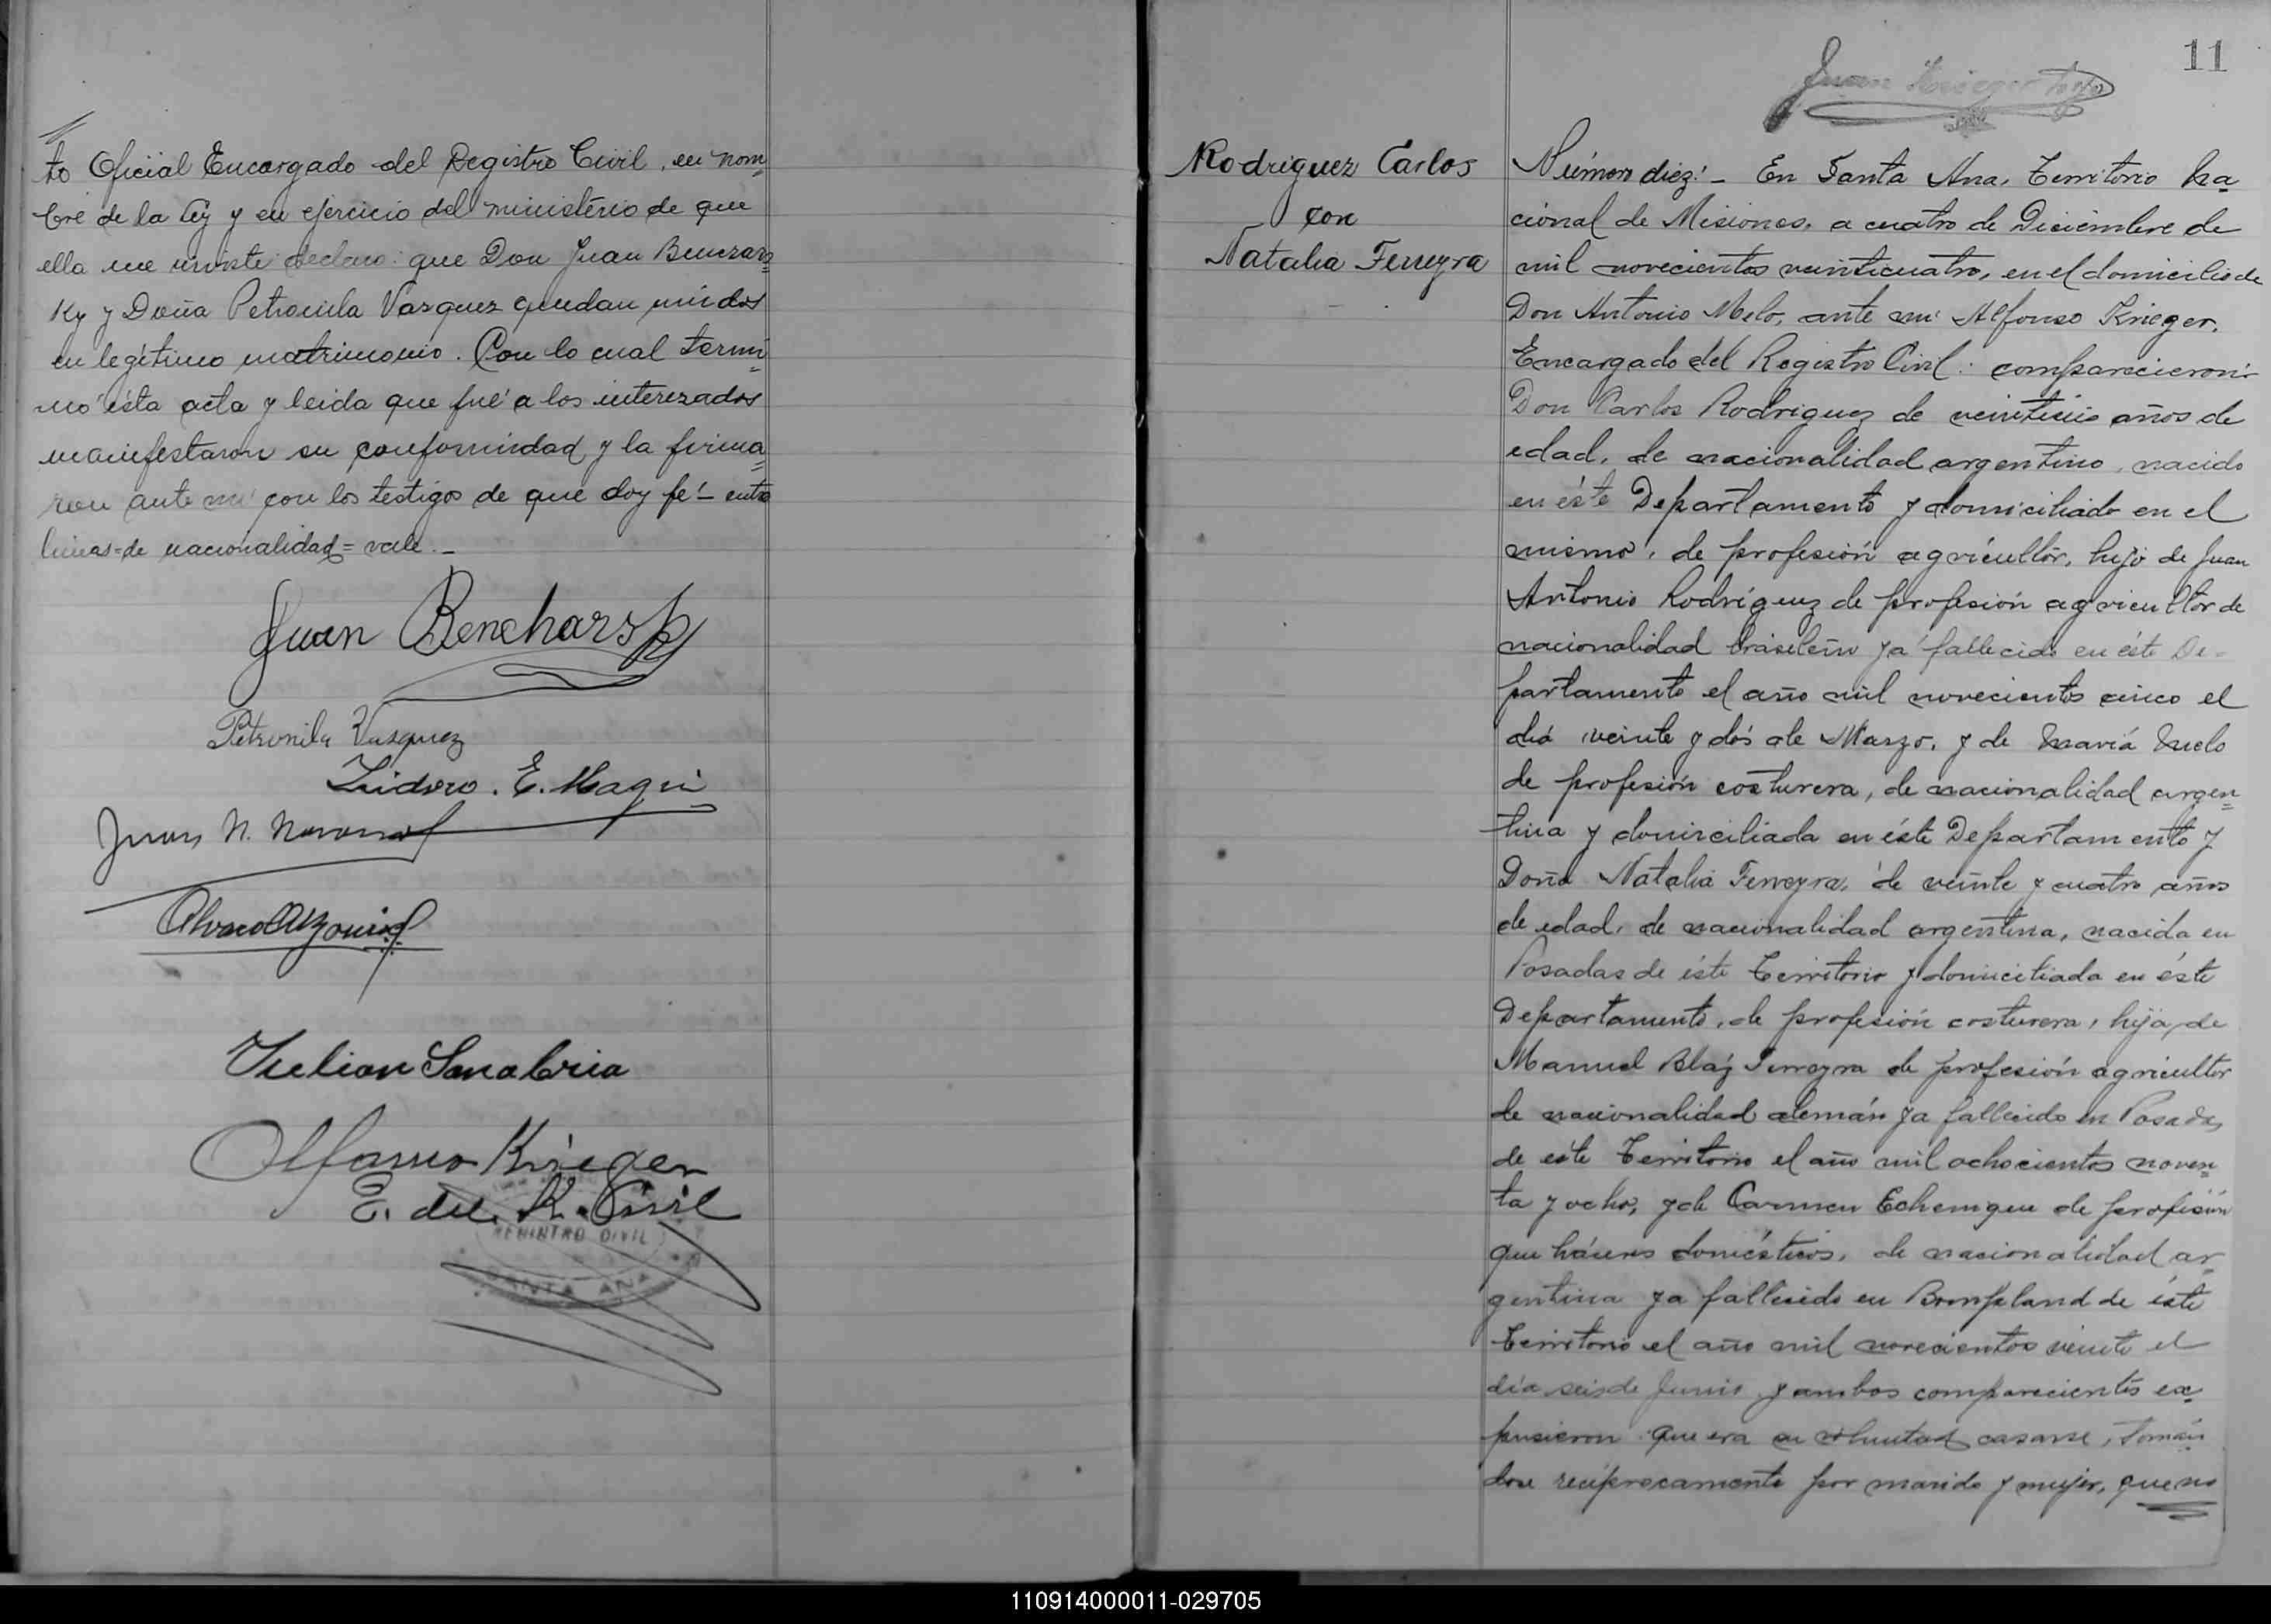 to Oficial Encargado del Registro Civil, en nom=
bre de la ley y en ejercicio del ministério de que
ella me inviste declaro: que Don Juan Benzars=
Ky y Doña Petronila Vasquez quedan unidos
en legítimo matrimonio. Con lo cual termi=
nó ésta acta y leida que fué a los interezados
manifestaron su conformidad y la firma=
ron ante mi con los testigos de que doy fé - entre
lineas = de nacionalidad = vale. -
Juan Bencharsky
Petronila Vasquez
Isidoro. E. Maqui
Juan N.
Julian Sanabria
Alfonso Krieger
E. del R. Civil
REGISTRO CIVIL
SANTA ANA
11
Juan Krieger
Rodriguez Carlos
con
Natalia Ferreyra
Número diez: - En Santa Ana, Territorio Na=
cional de Misiones, a cuatro de Diciembre de
mil novecientos veinticuatro, en el domicilio de
Don Antonio Melo, ante mi Alfonso Krieger,
Encargado del Registro Civil: comparecieron:
Don Carlos Rodriguez de años de
edad, de nacionalidad argentino, nacido
en éste Departamento y domiciliado en el
mismo, de profesión agricultor, hijo de Juan
Antonio Rodríguez de profesión agricultor de
nacionalidad brasileño ya fallecido en éste De-
partamento el año mil novecientos cinco el
día veinte y dós de Marzo, y de María Melo
de profesión costurera, de nacionalidad argen=
tina y domiciliada en éste Departamento y
Doña Natalia Ferreyra, de veinte y cuatro años
de edad, de nacionalidad argentina, nacida en
Posadas de éste Territorio y domiciliada en éste
Departamento, de profesión costurera, hija de
Manuel Bláz Ferreyra de profesión agricultor
de nacionalidad alemán ya fallecido en Posadas
de éste Territorio el año mil ochocientos noven=
ta y ocho, y de Carmen Echenique de profesión
que háceres domésticos, de nacionalidad ar=
gentina ya fallecida en Bompland de éste
Territorio el año mil novecientos veinte el
día seis de Junio y ambos comparecientes ex=
pusieron que era su voluntad casarse, tomán=
dose recíprocamente por marido y mujer, que no
110914000011-029705